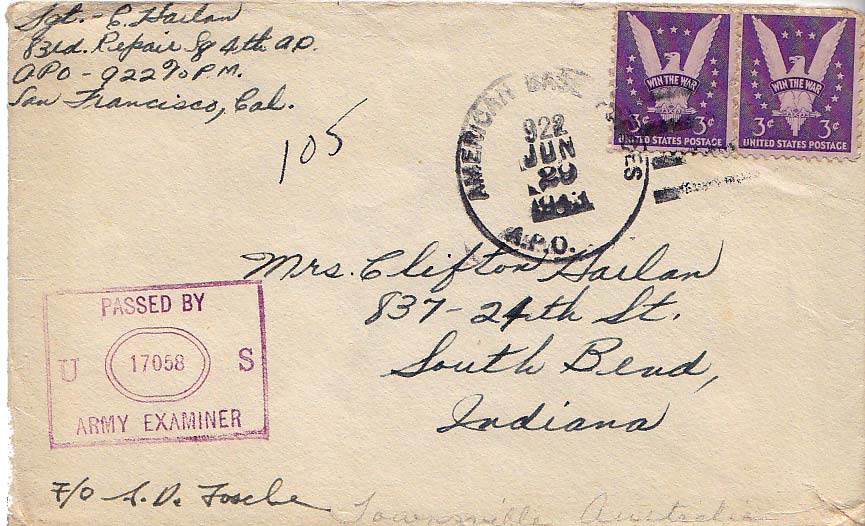 Sgt. E. Harlan
83rd. Repair Sq 4th A.D.
APO - 922 % P.M.
San Francisco, Cal.
105
AMERICAN BASE
922
JUN
29
1943
A.P.O.
WIN THE WAR
3¢ 3¢
UNITED STATES POSTAGE
WIN THE WAR
3¢ 3¢
UNITED STATES POSTAGE
Mrs. Clifton Harlan
837-24th St.
South Bend,
Indiana
PASSED BY
U 17058 S
ARMY EXAMINER
F/O
Townsville Australia